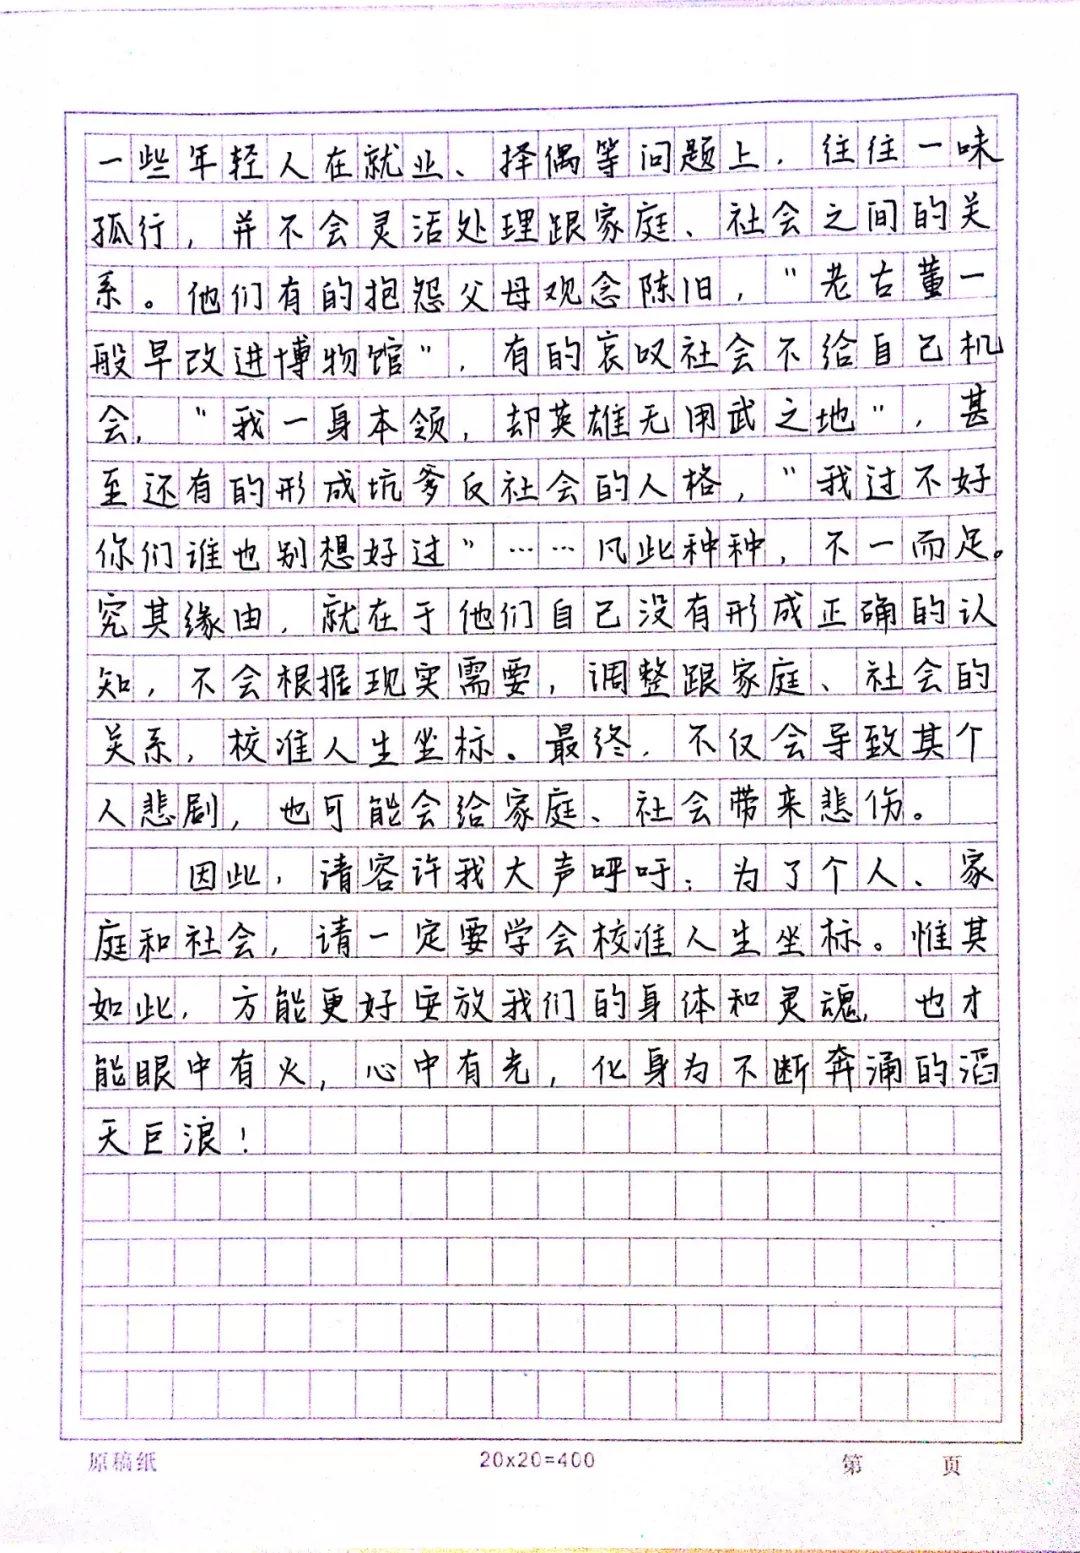 一些年轻人在就业、择偶等问题上，往往一味
孤行，并不会灵活处理跟家庭、社会之间的关
系。他们有的抱怨父母观念陈旧，“老古董一
般早改进博物馆”，有的哀叹社会不给自己机
会，“我一身本领，却英雄无用武之地”，甚
至还有的形成坑爹反社会的人格，“我过不好
你们谁也别想好过”……凡此种种，不一而足。
究其缘由，就在于他们自己没有形成正确的认
知，不会根据现实需要，调整跟家庭、社会的
关系，校准人生坐标。最终，不仅会导致其个
人悲剧，也可能会给家庭、社会带来悲伤。
因此，请容许我大声呼吁：为了个人、家
庭和社会，请一定要学会校准人生坐标。惟其
如此，方能更好安放我们的身体和灵魂，也才
能眼中有火，心中有光，化身为不断奔涌的滔
天巨浪！
原稿纸 20×20=400 第 页